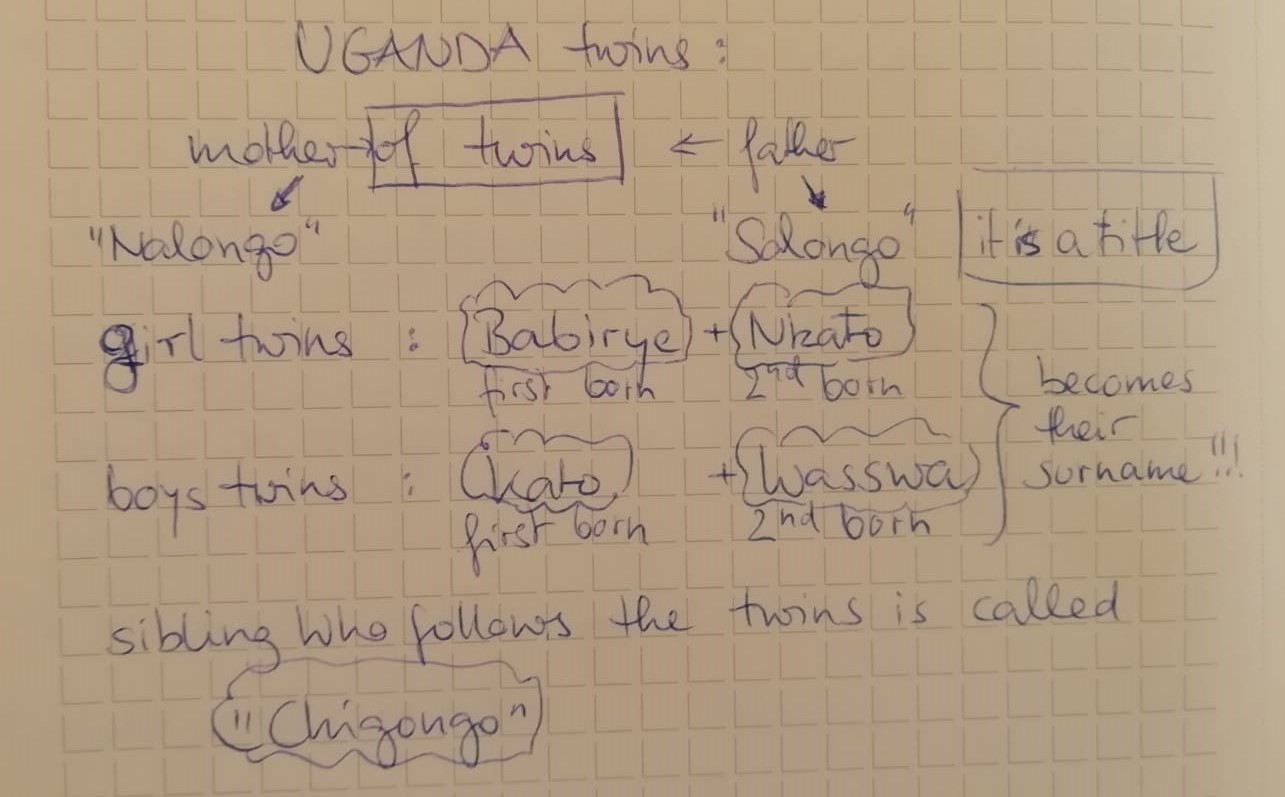 UGANDA twins:
mother → of twins ← father
"Nalongo" "Salongo" it is a title
girl twins : Babirye + Nkato
first born 2nd born
boys twins : Kato + Wasswa
first born 2nd born
becomes
their
surname!!!
sibling who follows the twins is called
"Chigongo"